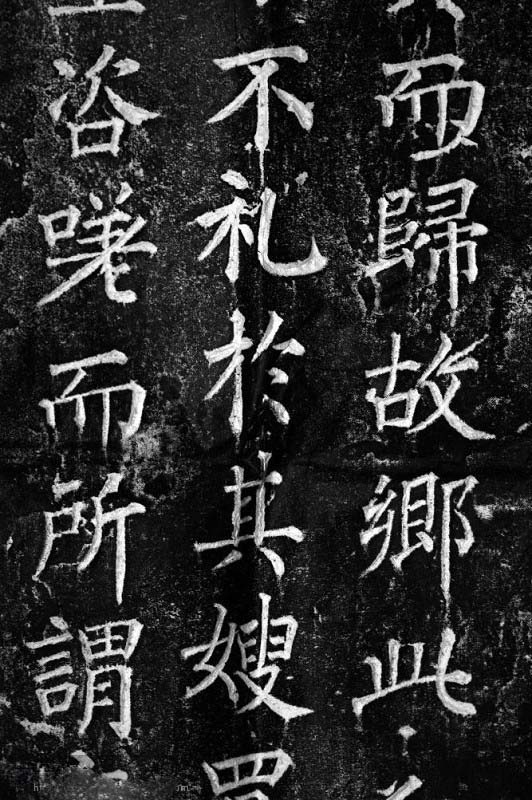 而歸故鄉此
不礼於其嫂
咨嗟而所謂